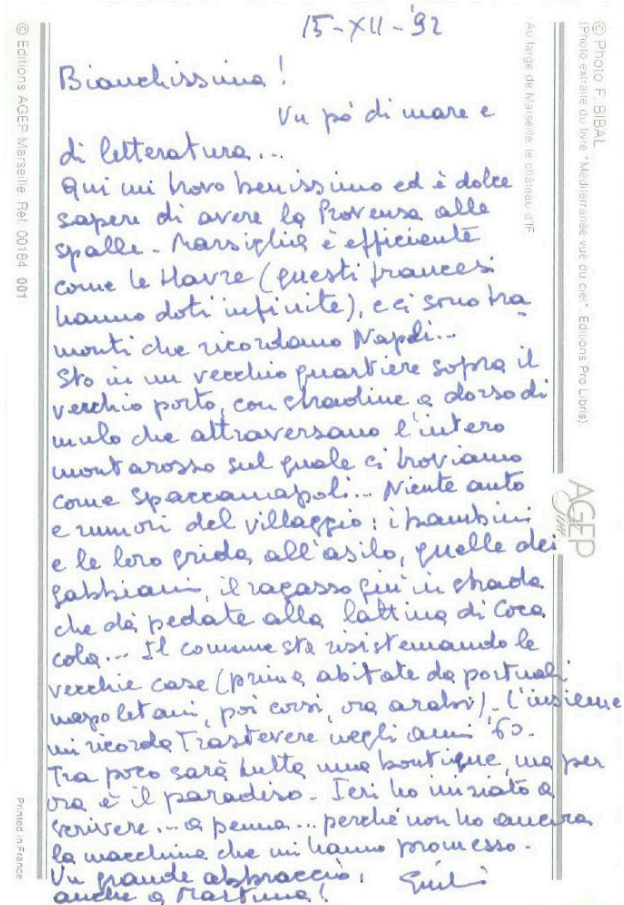 15-XII-'92
Bianchissima!
Un pò di mare e
di letteratura...
Qui mi trovo benissimo ed è dolce
sapere di avere la Provenza alle
spalle - Marsiglia è efficiente
come le Havre (questi francesi
hanno doti infinite), e ci sono tra
monti che ricordano Napoli...
Sto in un vecchio quartiere sopra il
vecchio porto, con stradine a dorso di
mulo che attraversano l'intero
montarosso sul quale ci troviamo
come Spaccanapoli... Niente auto
e rumori del villaggio: i bambini
e le loro grida all'asilo, quelle dei
gabbiani, il ragazzo giù in strada
che dà pedate alla lattina di Coca
cola... Il comune sta risistemando le
vecchie case (prima abitate da portuali
napoletani, poi corsi, ora arabi). L'insieme
mi ricorda Trastevere negli anni '60.
Tra poco sarà tutta una boutique, ma per
ora è il paradiso. Ieri ho iniziato a
scrivere... a penna... perché non ho ancora
la macchina che mi hanno promesso.
Un grande abbraccio,
anche a Martina!
© Editions AGEP Marseille Réf. 00184 001
Printed in France
Au large de Marseille le château d'IF
© Photo F. BIBAL
(Photo extraite du livre "Méditerranée vue du ciel" Editions Pro Libris)
AGEP